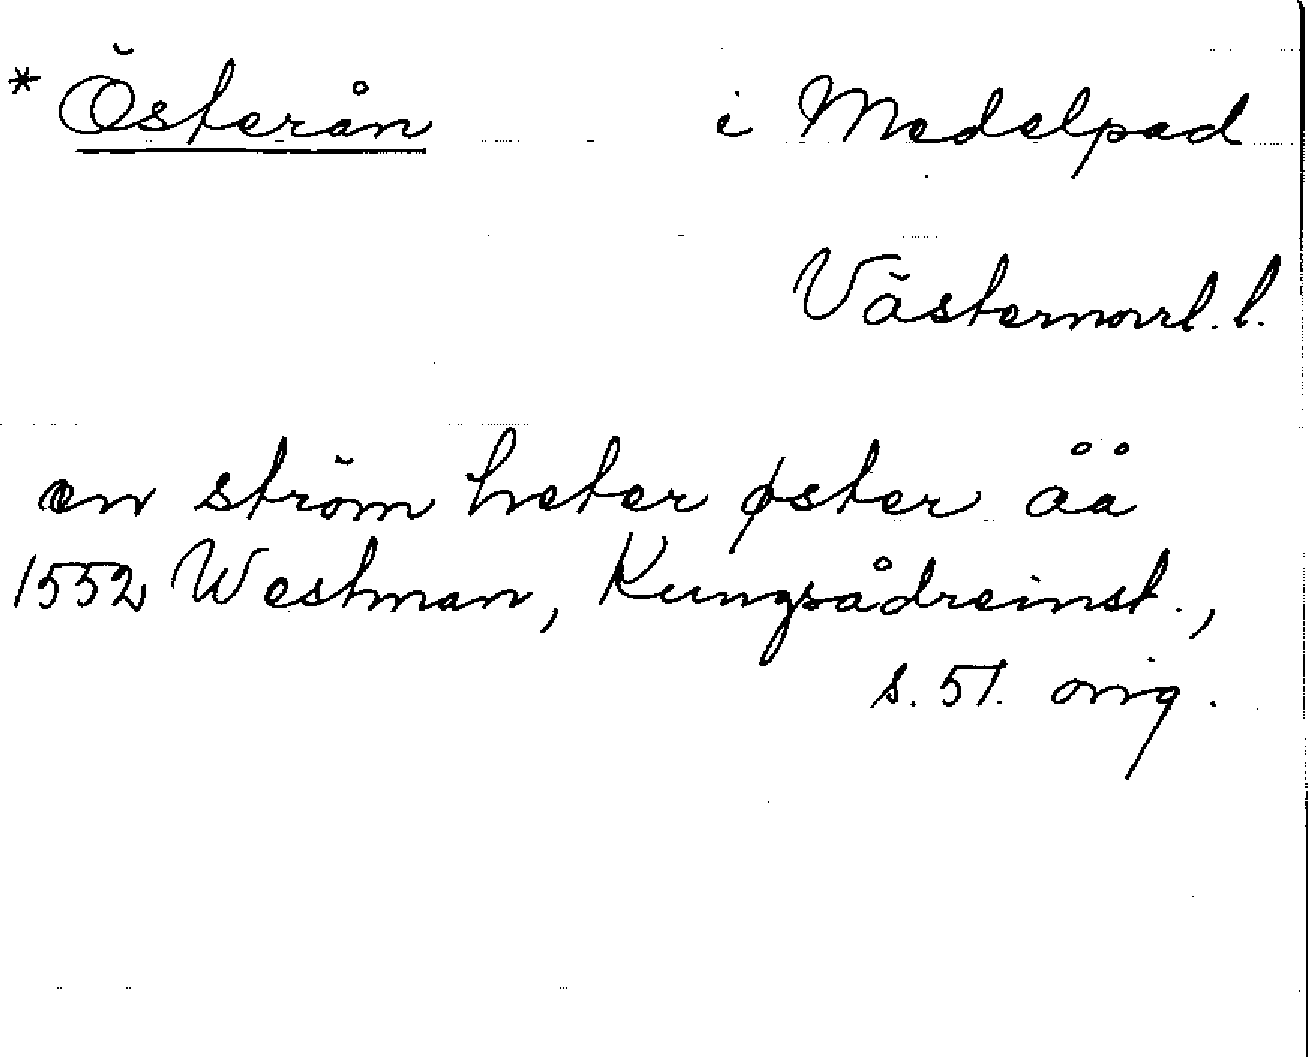 * Österån i Medelpad
Västernorrl. l.
en ström heter øster åå
1552 Westman, Kungsådreinst.,
s. 51. orig.